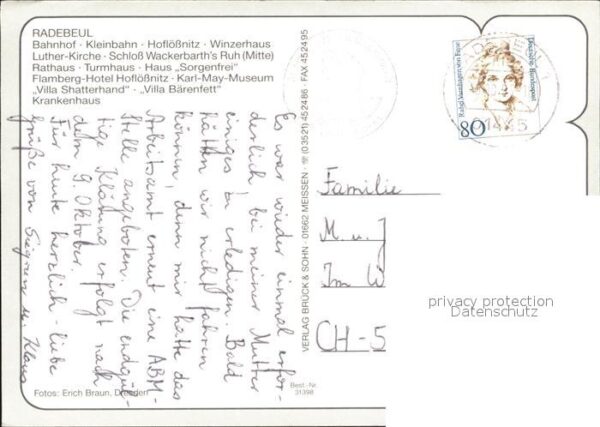 RADEBEUL
Bahnhof · Kleinbahn · Hoflößnitz · Winzerhaus
Luther-Kirche · Schloß Wackerbarth's Ruh (Mitte)
Rathaus · Turmhaus · Haus „Sorgenfrei"
Flamberg-Hotel Hoflößnitz · Karl-May-Museum
„Villa Shatterhand" · „Villa Bärenfett"
Krankenhaus
Es war wieder einmal erfor-
derlich bei meiner Mutter
einiges zu erledigen. Bald
hätten wir nicht fahren
können, denn mir hatte das
Arbeitsamt erneut eine ABM-
Stelle angeboten. Die endgül-
tige Klärung erfolgt nach
dem 9. Oktober.
Für heute herzlich-liebe
Grüße von Sigrun u. Klaus
Fotos: Erich Braun, Dresden
Best.-Nr.
31398
VERLAG BRÜCK & SOHN · 01662 MEISSEN · ☏ (03521) 452486 · FAX 452495
Rahel Varnhagen von Ense
Deutsche Bundespost
80
Familie
M. u. J
Im W
CH-5
privacy protection
Datenschutz